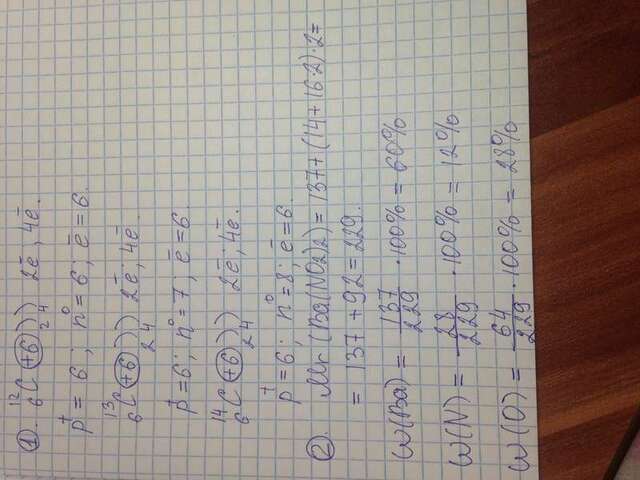 1. ¹²₆C (+6) ) ) 2 4 2ē, 4ē.
p⁺ = 6; n⁰ = 6; ē = 6.
¹³₆C (+6) ) ) 2 4 2ē; 4ē.
p⁺ = 6; n⁰ = 7; ē = 6.
¹⁴₆C (+6) ) ) 2 4 2ē; 4ē.
p⁺ = 6; n⁰ = 8; ē = 6.
2. Mr (Ba(NO2)2) = 137 + (14 + 16·2)·2 =
= 137 + 92 = 229.
ω(Ba) = 137/229 · 100% = 60%
ω(N) = 28/229 · 100% = 12%
ω(O) = 64/229 · 100% = 28%